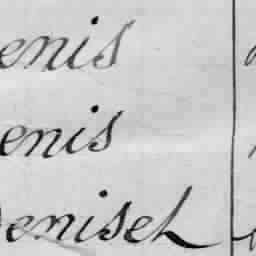 enis
enis
Denisel